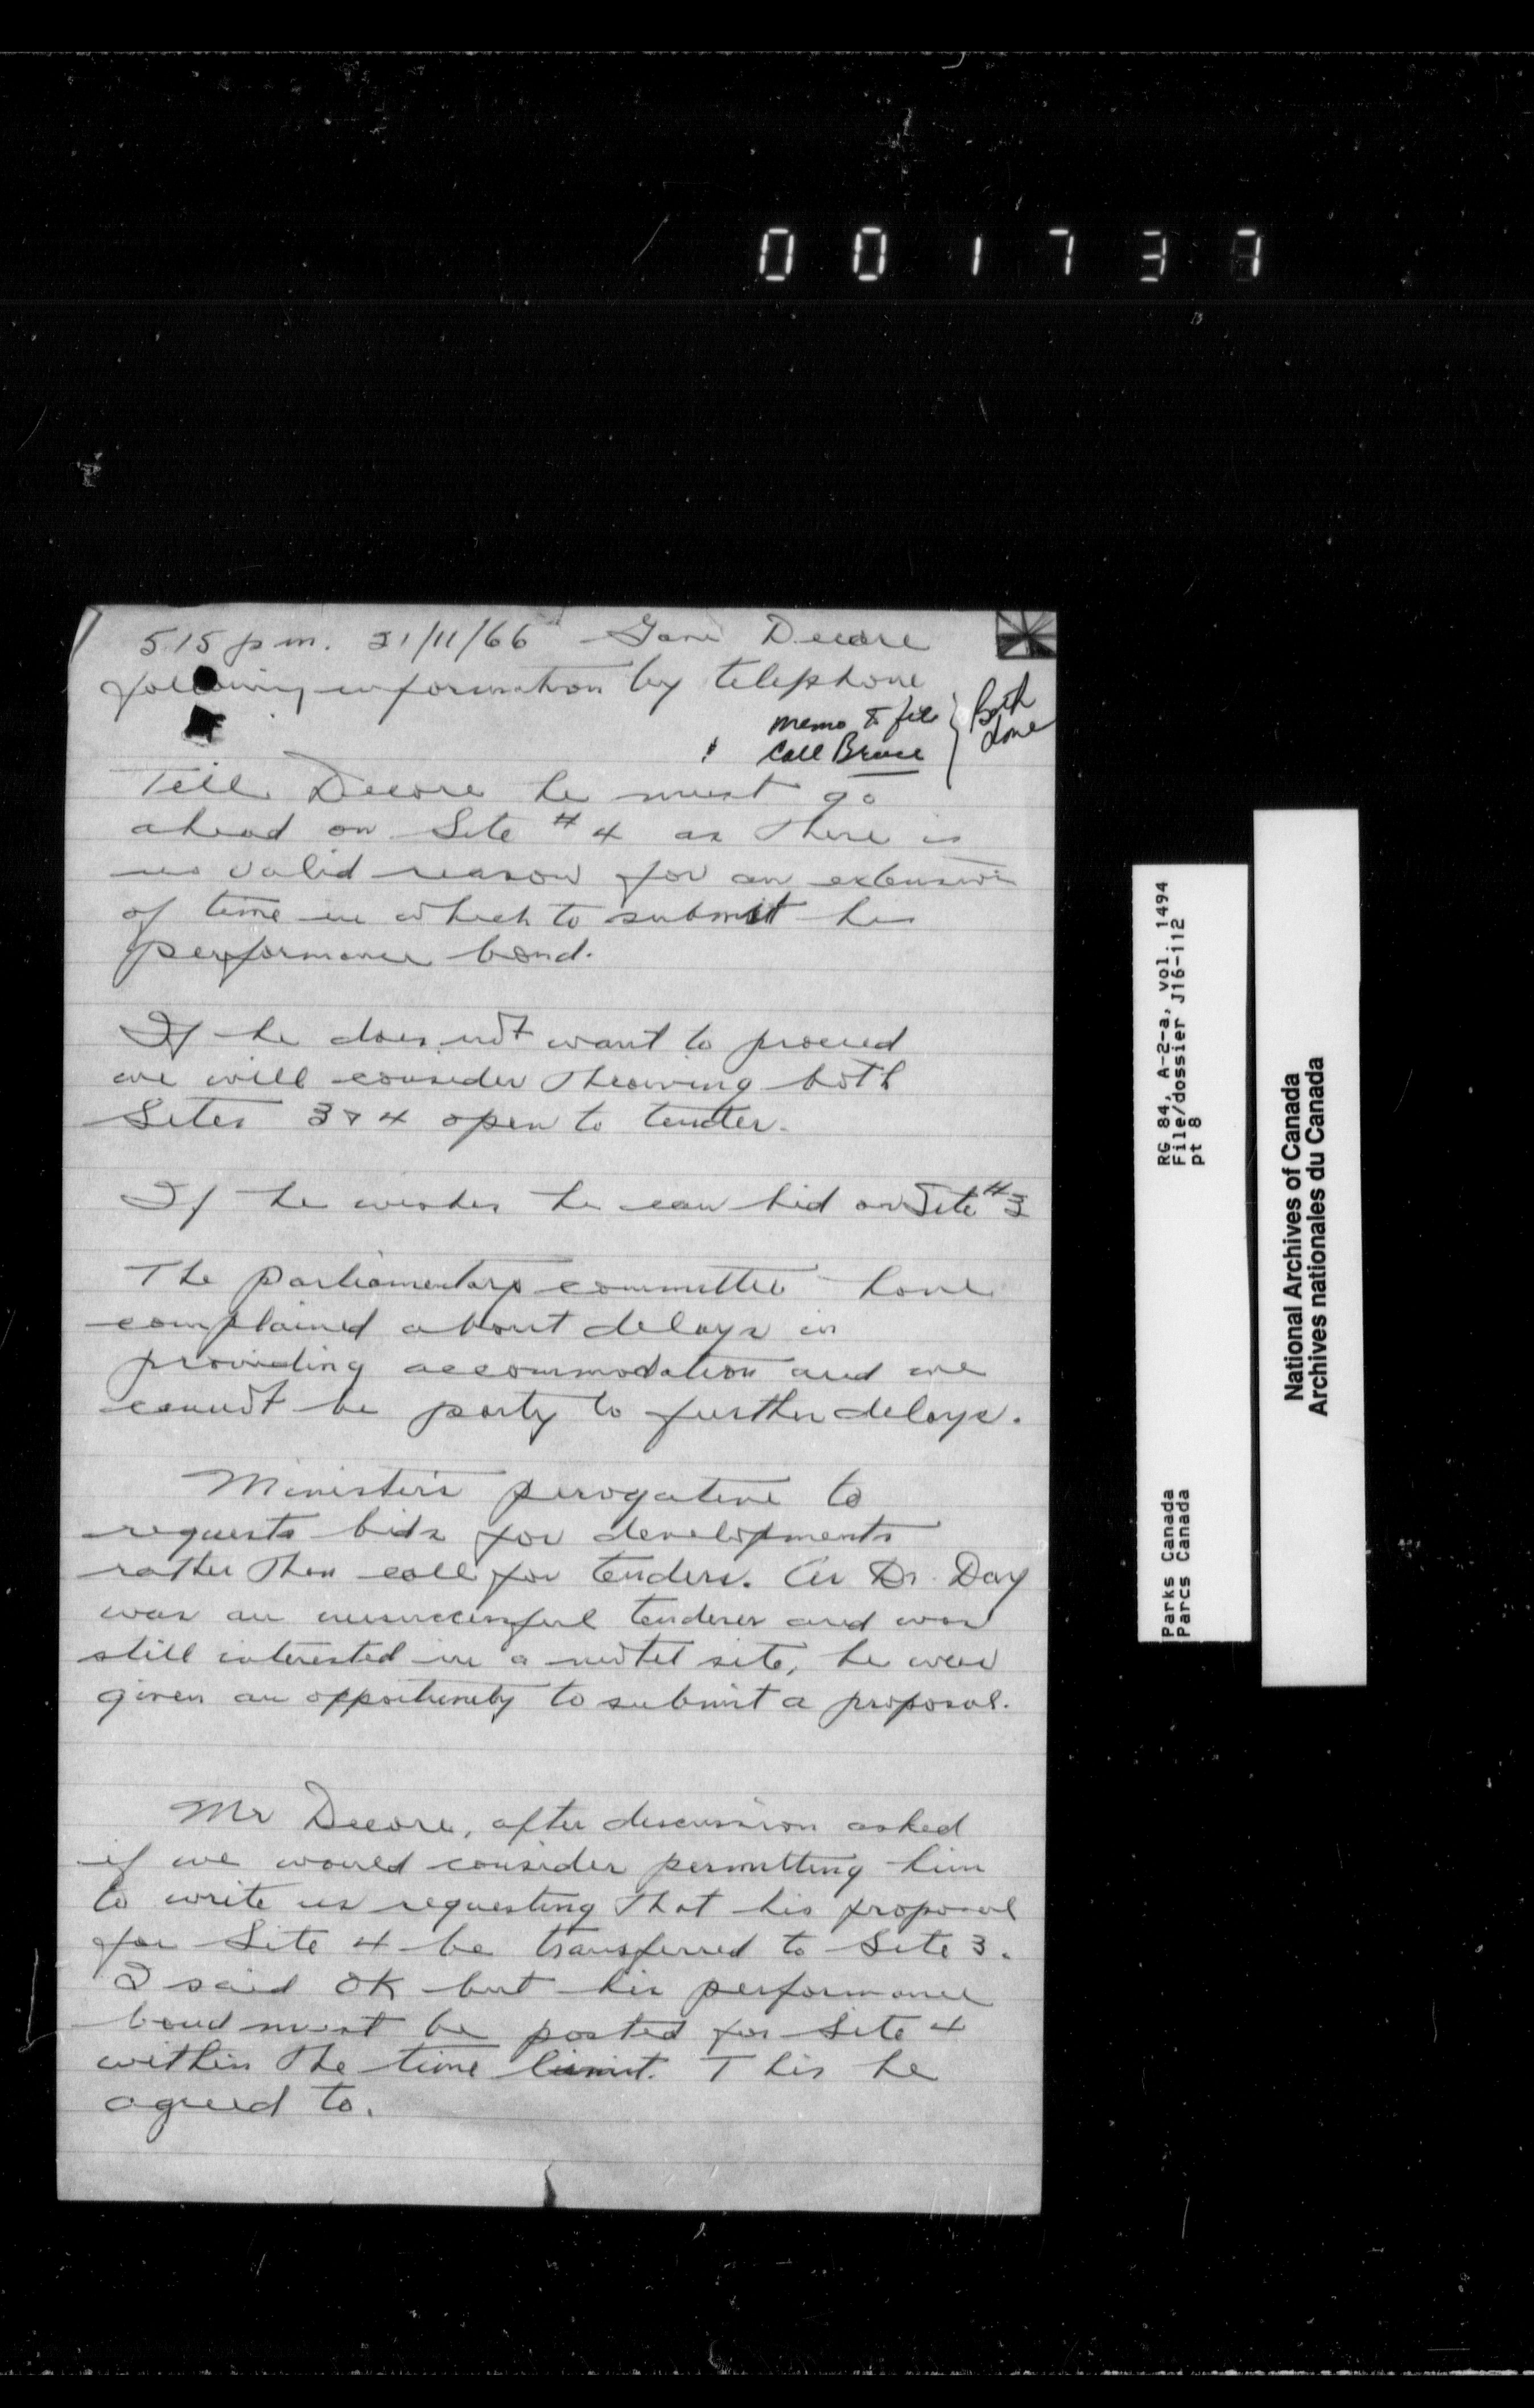 001737
5.15 p m. 21/11/66 Gave Decore
following information by telephone
Memo to file
& Call Bruce
Both
done
Tell Decore he must go
ahead on Site #4 as there is
no valid reason for an extension
of time in which to submit his
performance bond.
If he does not want to proceed
we will consider throwing both
Sites 3 & 4 open to tender.
If he wishes he can bid on Site #3
The parliamentary committee have
complained about delays in
providing accommodation and we
cannot be party to further delays.
Minister's perogative to
requests bids for developments
rather than call for tenders. As Dr. Day
was an unsuccessful tenderer and was
still interested in a motel site, he was
given an opportunity to submit a proposal.
Mr Decore, after discussion asked
if we would consider permitting him
to write us requesting that his proposal
for Site 4 be transferred to Site 3.
I said OK but his performance
bond must be posted for Site 4
within the time limit. This he
agreed to.
RG 84, A-2-a, vol. 1494
File/dossier J16-112
pt 8
Parks Canada
Parcs Canada
National Archives of Canada
Archives nationales du Canada